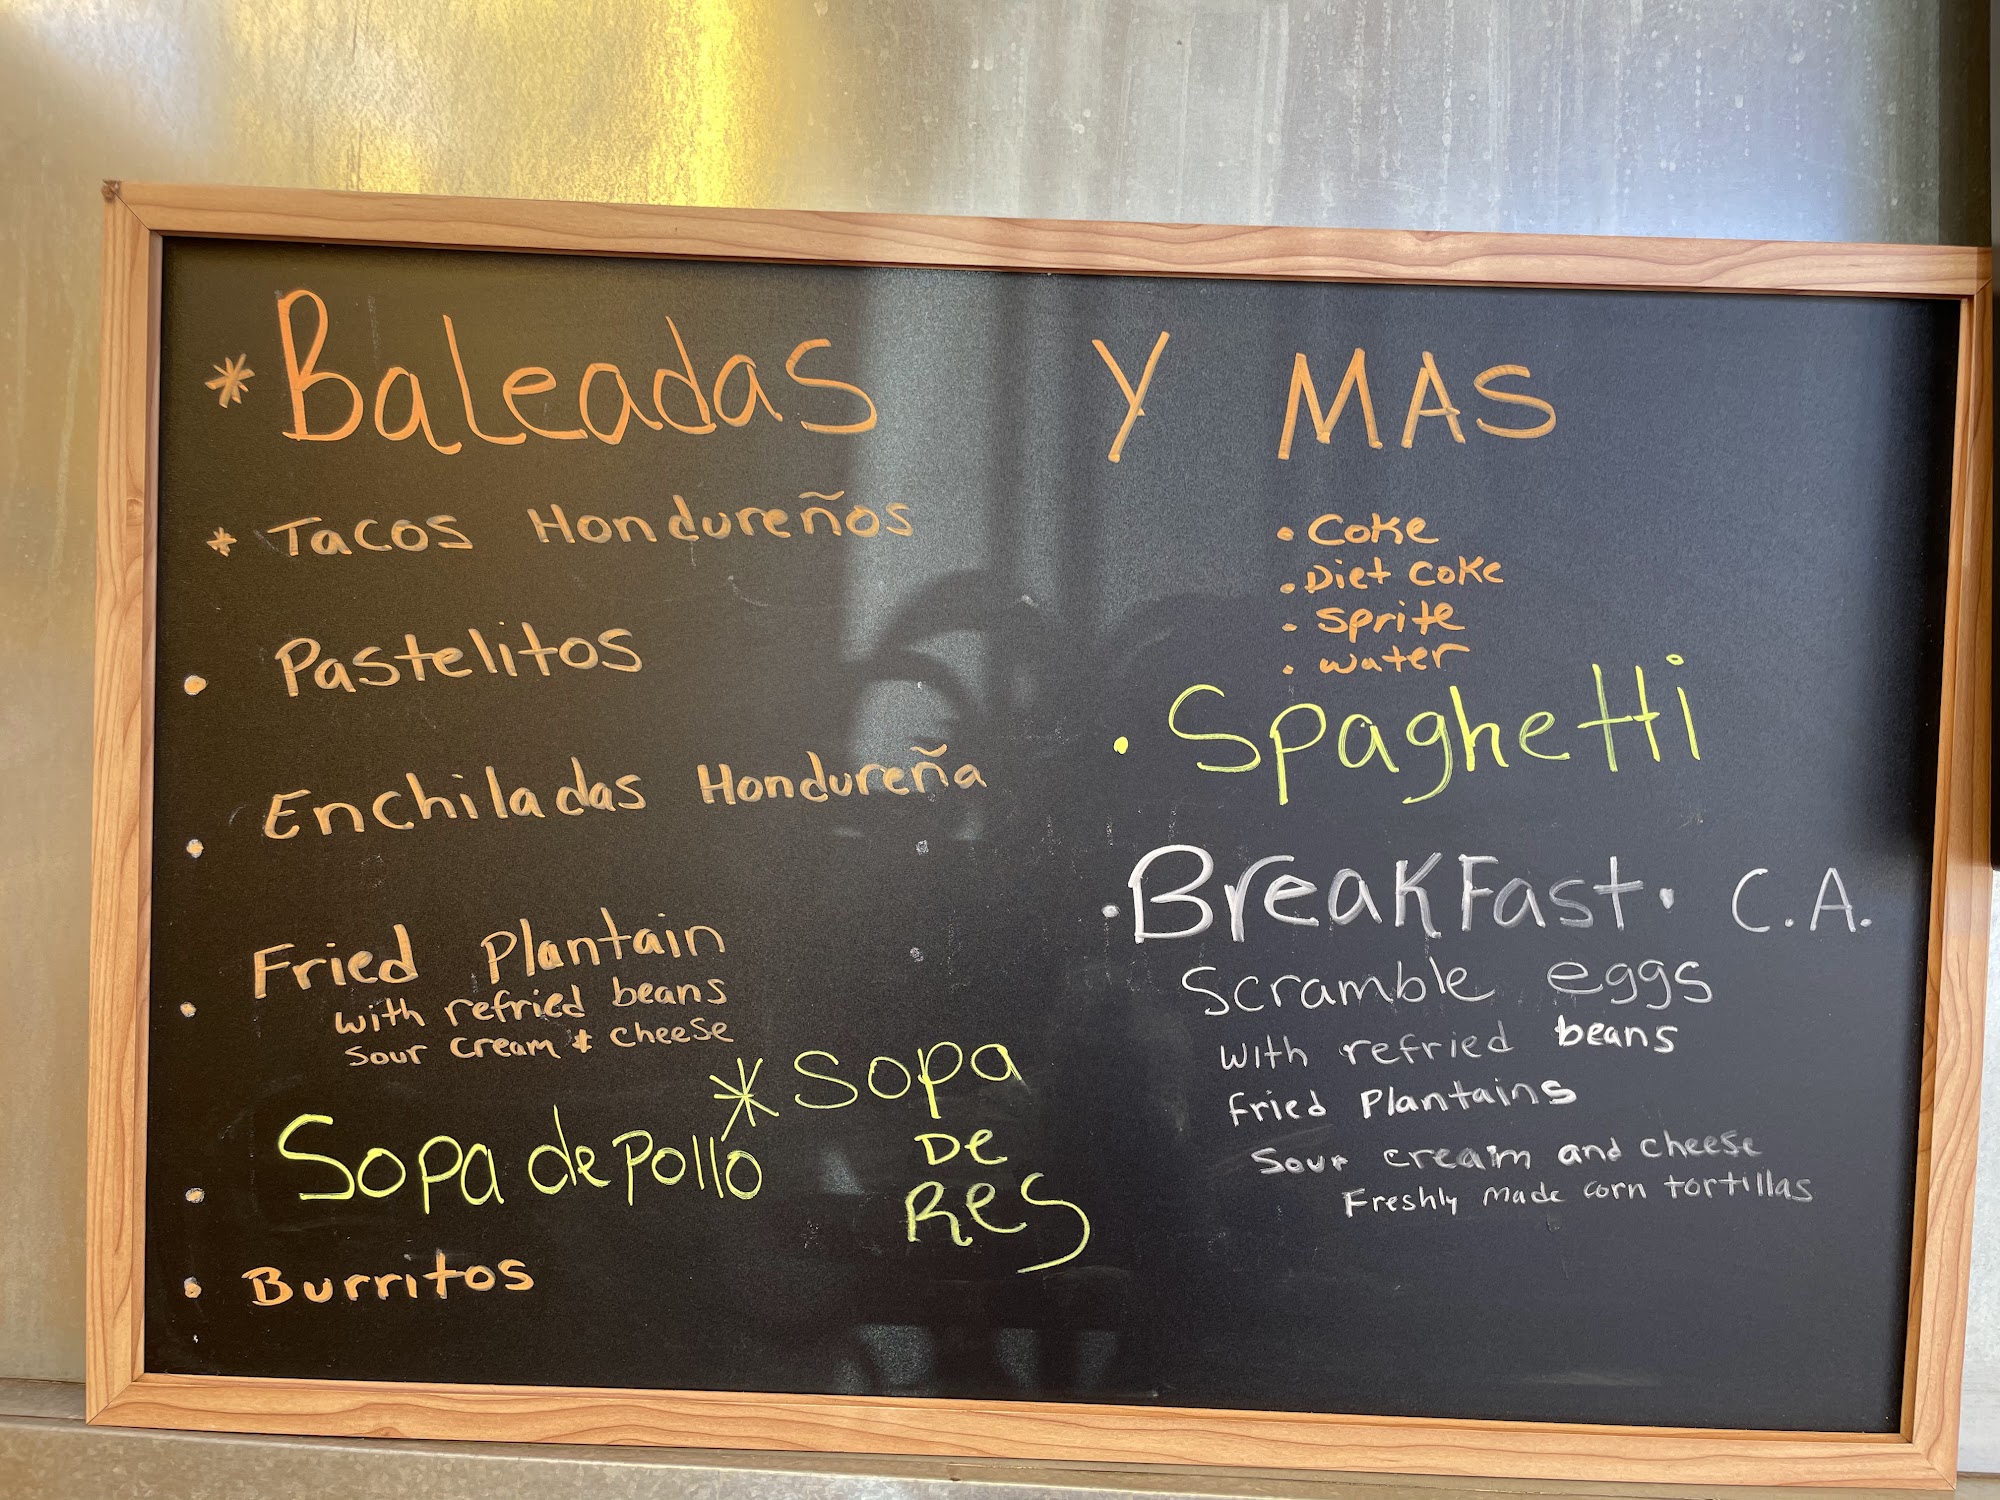 * Baleadas Y MAS
* Tacos Hondureños
• Pastelitos
• Enchiladas Hondureña
• Fried Plantain
with refried beans
sour cream & cheese
• Sopa de pollo
* Sopa
De
Res
• Burritos
• Coke
• Diet Coke
• Sprite
• water
• Spaghetti
• BreakFast • C.A.
Scramble eggs
with refried beans
Fried Plantains
Sour cream and cheese
Freshly made corn tortillas